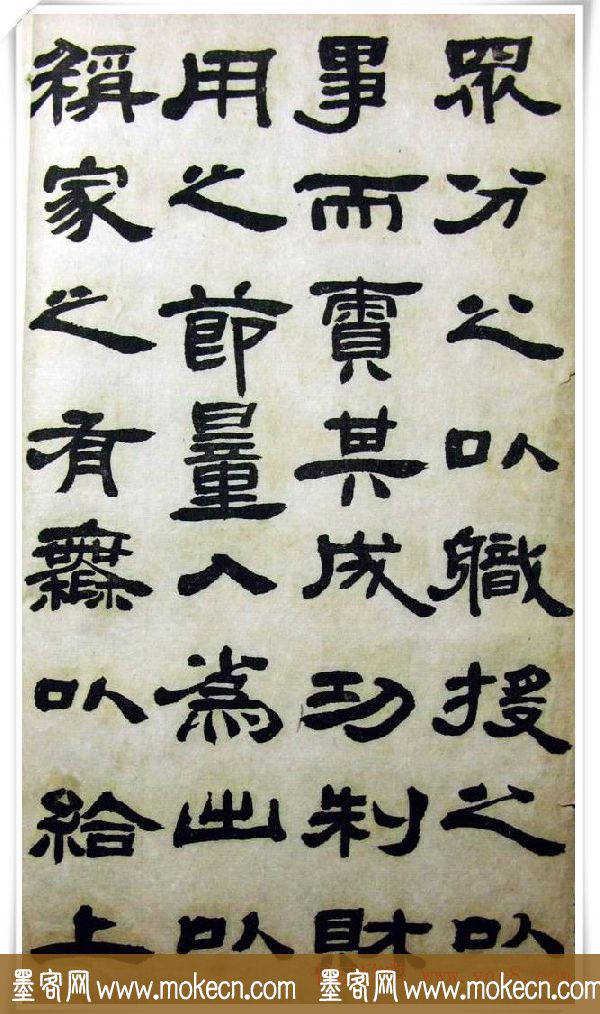 眾分之以職授之以
事而責其成功制財
用之節量入爲出以
稱家之有無以給上
墨客网 www.mokecn.com 墨客网 www.mokecn.com